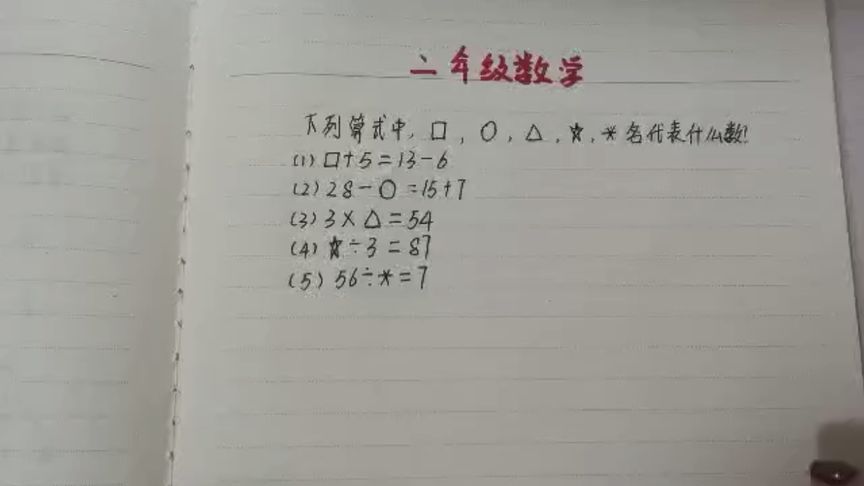 二年级数学
下列算式中,□,○,△,☆,*各代表什么数!
(1)□+5=13-6
(2)28-○=15+7
(3)3×△=54
(4)☆÷3=87
(5)56÷*=7